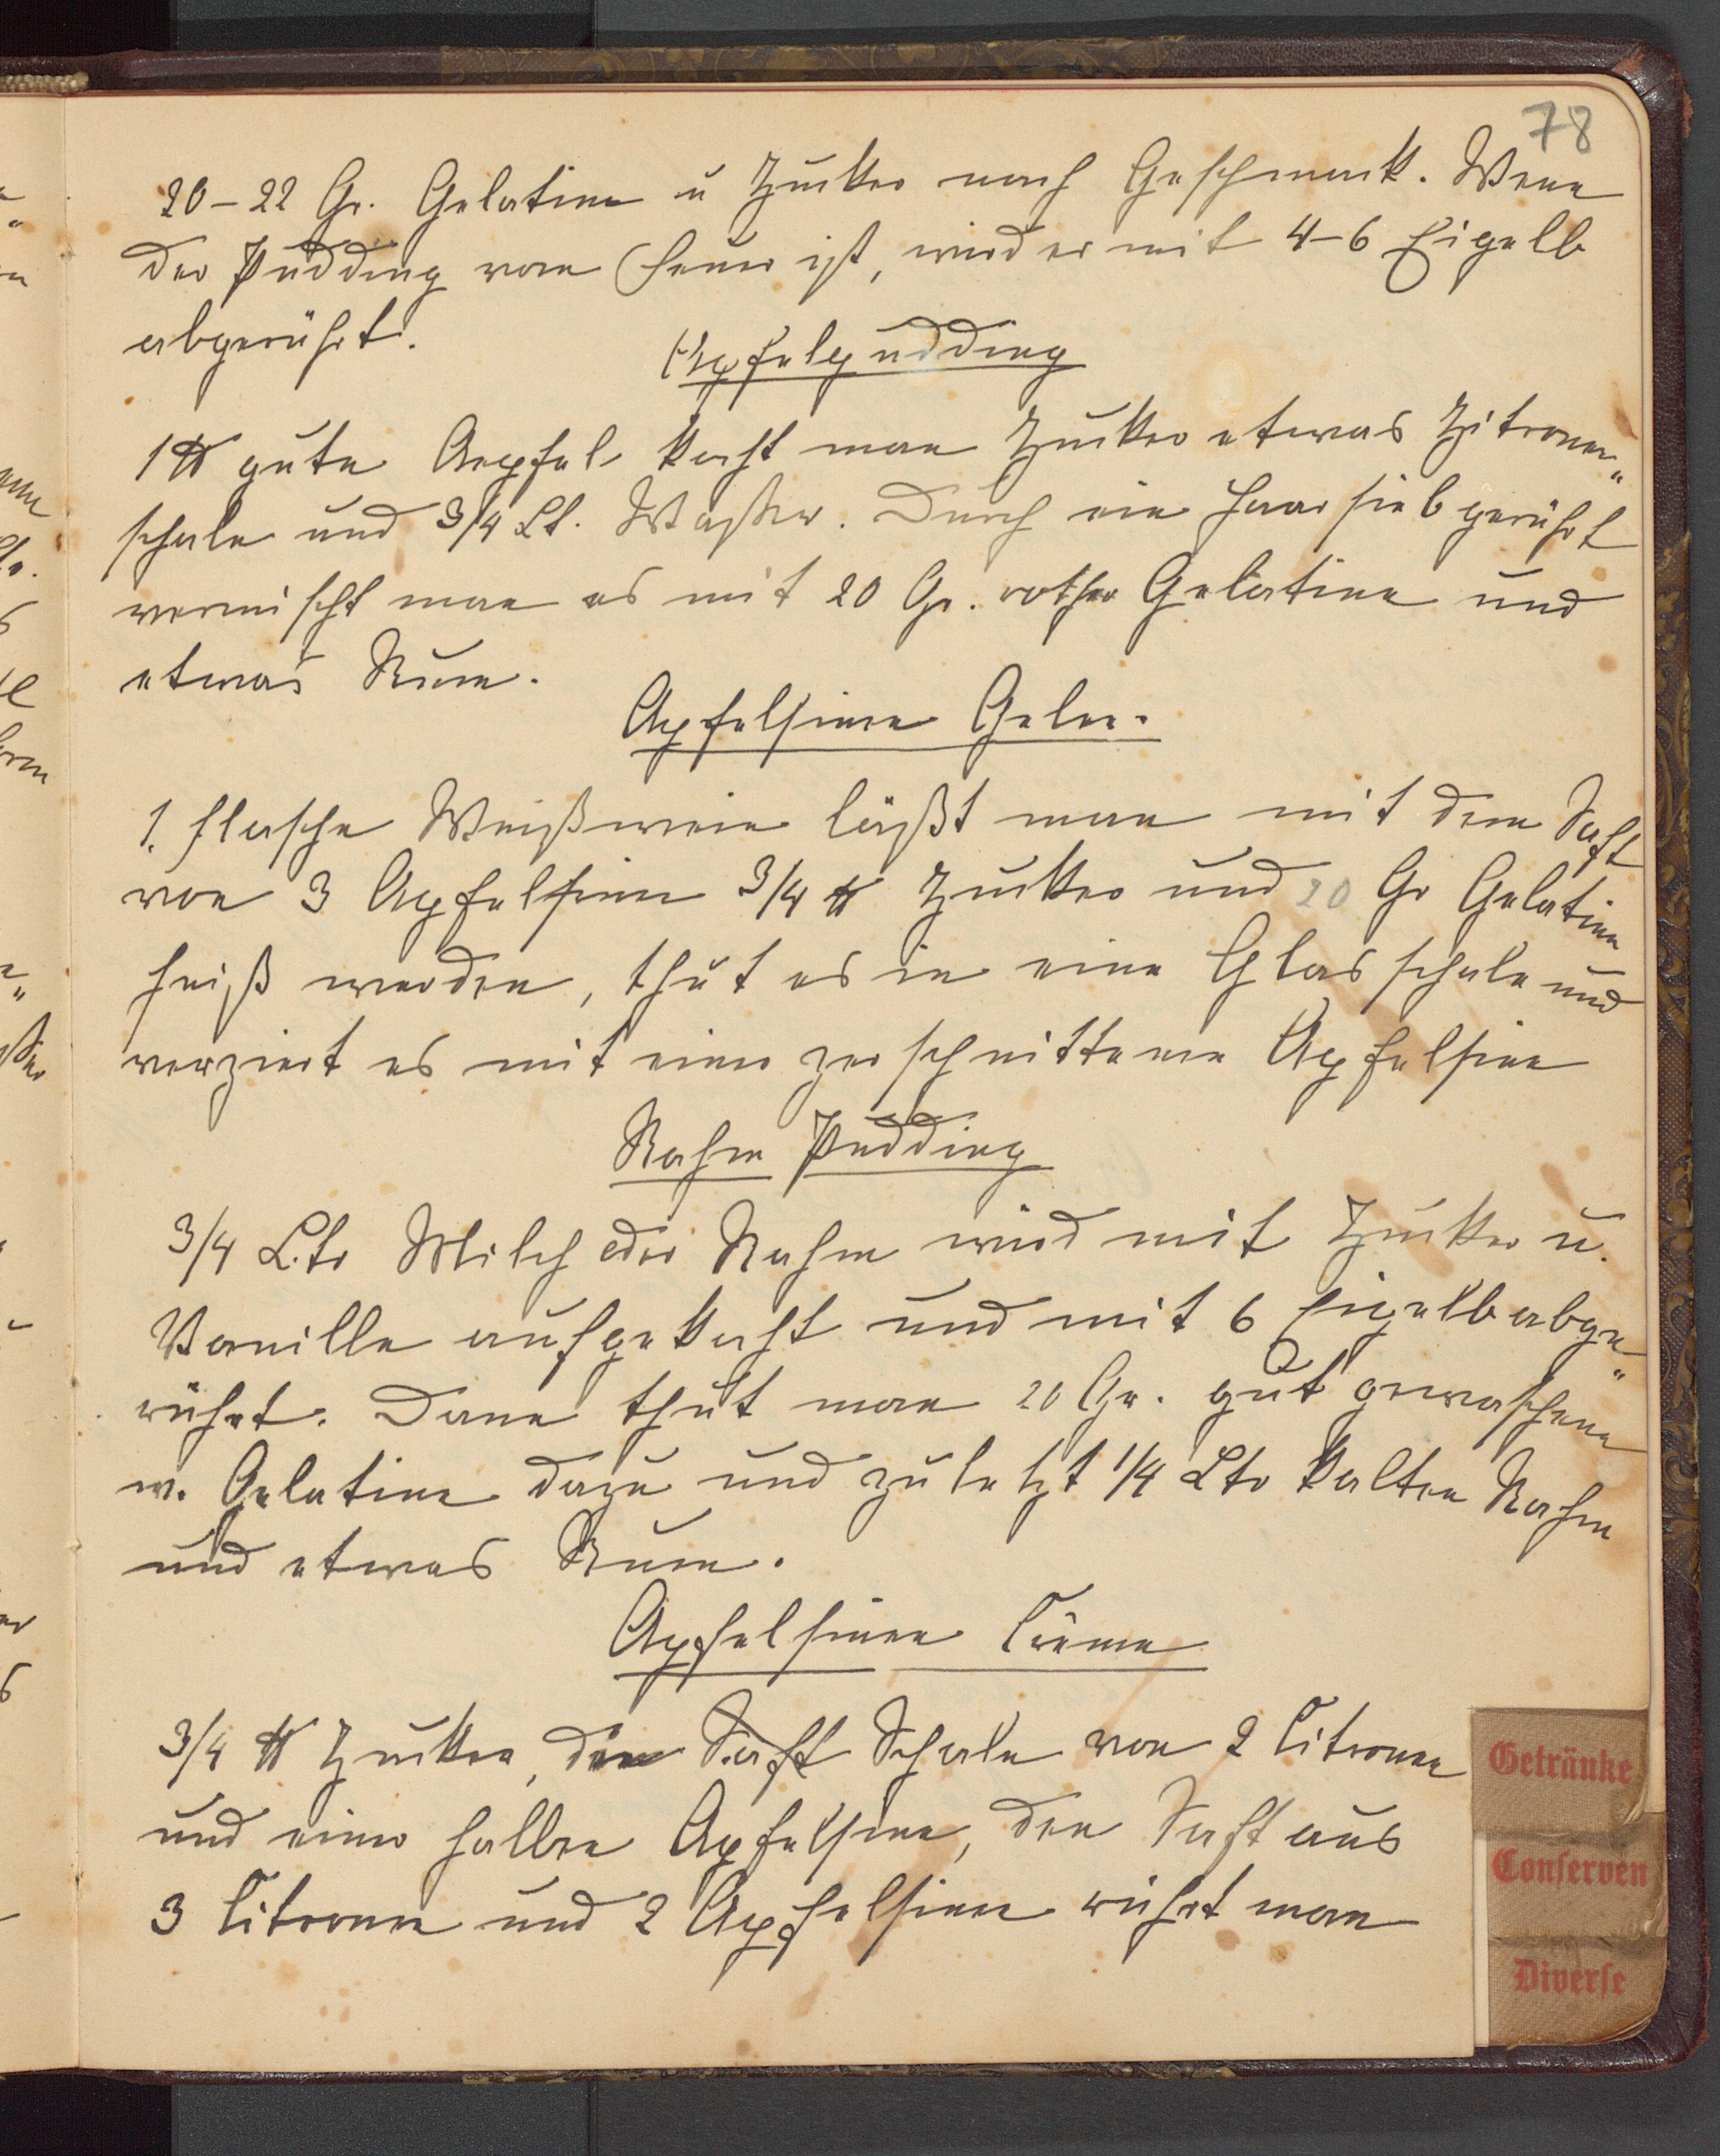 78
20-22 Gr. Gelatine u Zucker nach Geschmack. Wenn
der Pudding vom Feuer ist, wird er mit 4-6 Eigelb
abgerührt.
Apfelpudding
1 ℔ gute Aepfel kocht man Zucker etwas Zitronen„
schale und 3/4 Lt. Waßer. Durch ein Haarsieb gerührt
vermischt man es mit 20 Gr. rother Gelatine und
etwas Rum.
Apfelsinen Gelee.
1. Flasche Weißwein läßt man mit dem Saft
von 3 Apfelsinen 3/4 ℔ Zucker und 20 Gr Gelatine
heiß werden, thut es in eine Glasschale und
verziert es mit einer zerschnittenen Apfelsine
Rahm Pudding
3/4 Ltr Milch oder Rahm wird mit Zucker u.
Vanille aufgekocht und mit 6 Eigelb abge„
rührt. Dann thut man 20 Gr. gut gewaschene
w. Gelatine dazu und zuletzt 1/4 Ltr kalten Rahm
und etwas Rum.
Apfelsinen Crême
3/4 ℔ Zucker, den Saft Schale von 2 Citronen
und einer halben Apfelsine, den Saft aus
3 Citronen und 2 Apfelsinen rührt man
Getränke
Conserven
Diverse